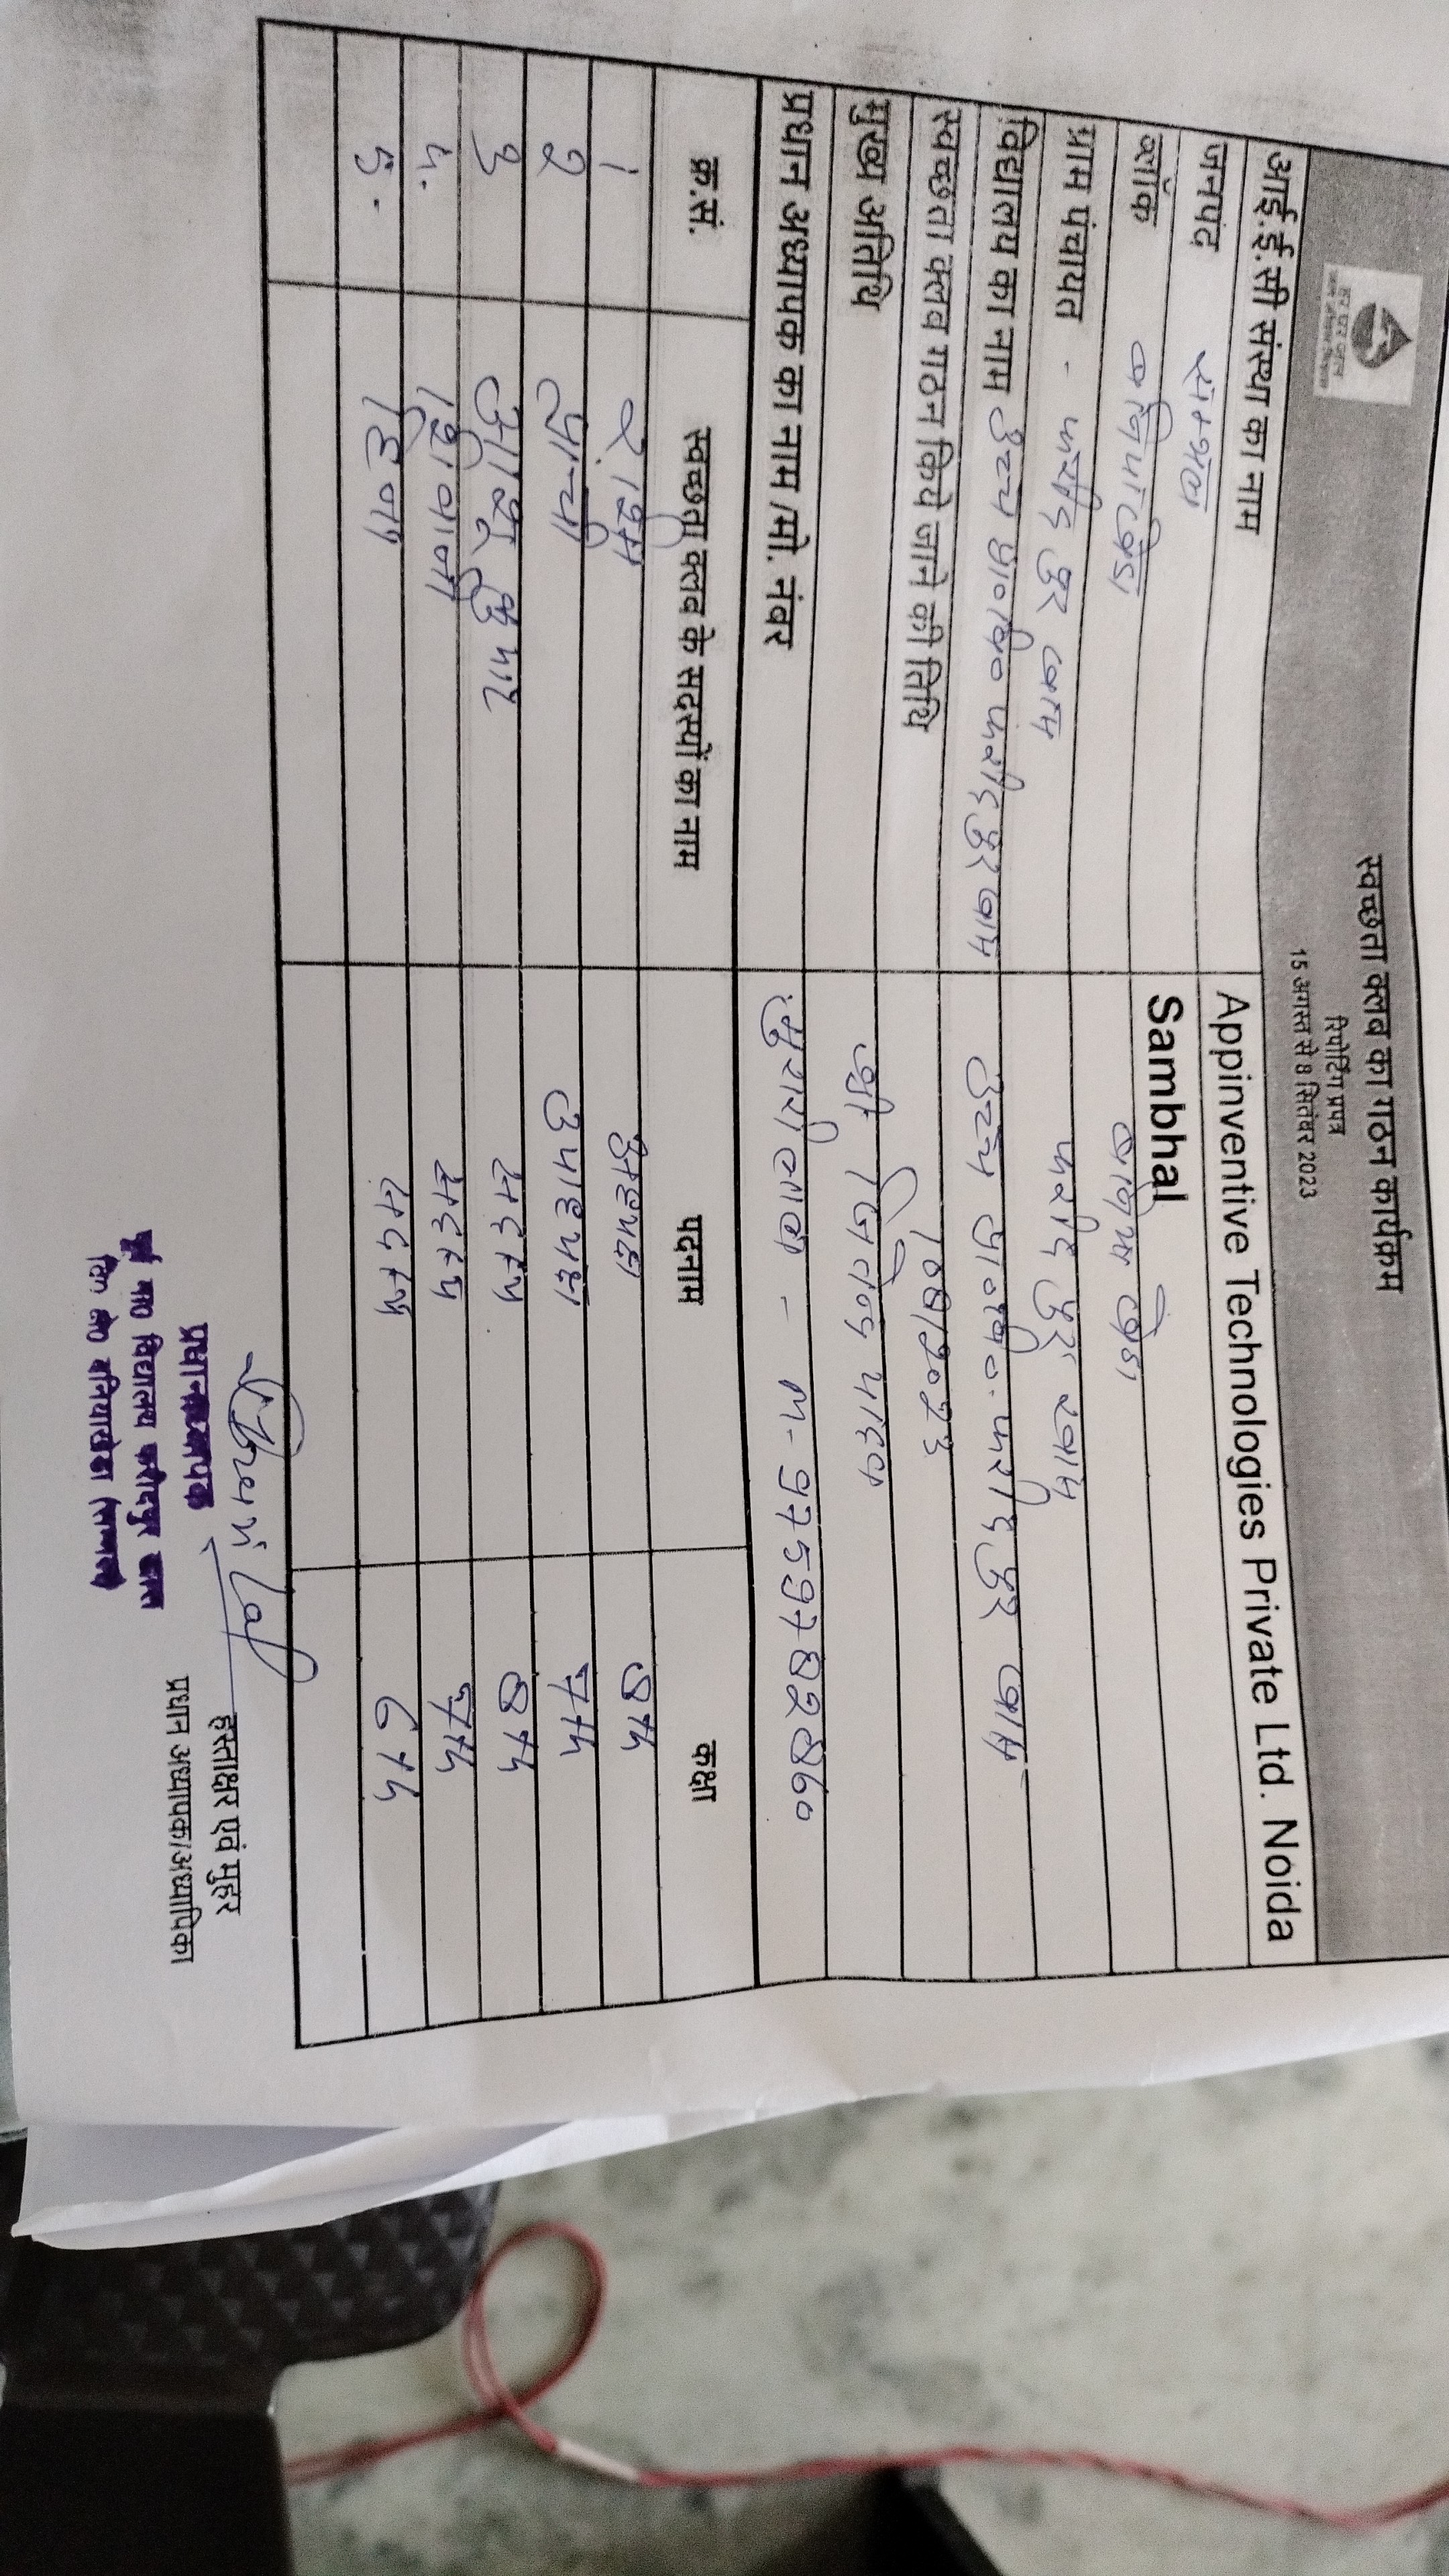 स्वच्छता क्लब का गठन कार्यक्रम
रिपोर्टिंग प्रपत्र
15 अगस्त से 8 सितंबर 2023
हर घर जल
आई.ई.सी संस्था का नाम Appinventive Technologies Private Ltd. Noida
जनपद सम्भल Sambhal
ब्लॉक बनियाखेडा
ग्राम पंचायत - फरीदपुर खास फरीदपुर खास
विद्यालय का नाम उच्च प्रा०वि० फरीदपुर खास उच्च प्रा०वि०. फरीदपुर खास
स्वच्छता क्लब गठन किये जाने की तिथि
मुख्य अतिथि श्री जितेन्द्र यादव
प्रधान अध्यापक का नाम /मो. नंबर - M- 9759782860
क्र.सं. स्वच्छता क्लब के सदस्यों का नाम पदनाम कक्षा
1 अध्यक्ष 8th
2 प्राची उपाध्यक्ष 7th
3 कुमार सदस्य 8th
4. शिवानी सदस्य 7th
5. सदस्य 6th
Lal
हस्ताक्षर एवं मुहर
प्रधान अध्यापक/अध्यापिका
प्रधानाध्यापक
पूर्व मा० विद्यालय फरीदपुर खास
वि० क्षे० बनियाखेडा (सम्भल)